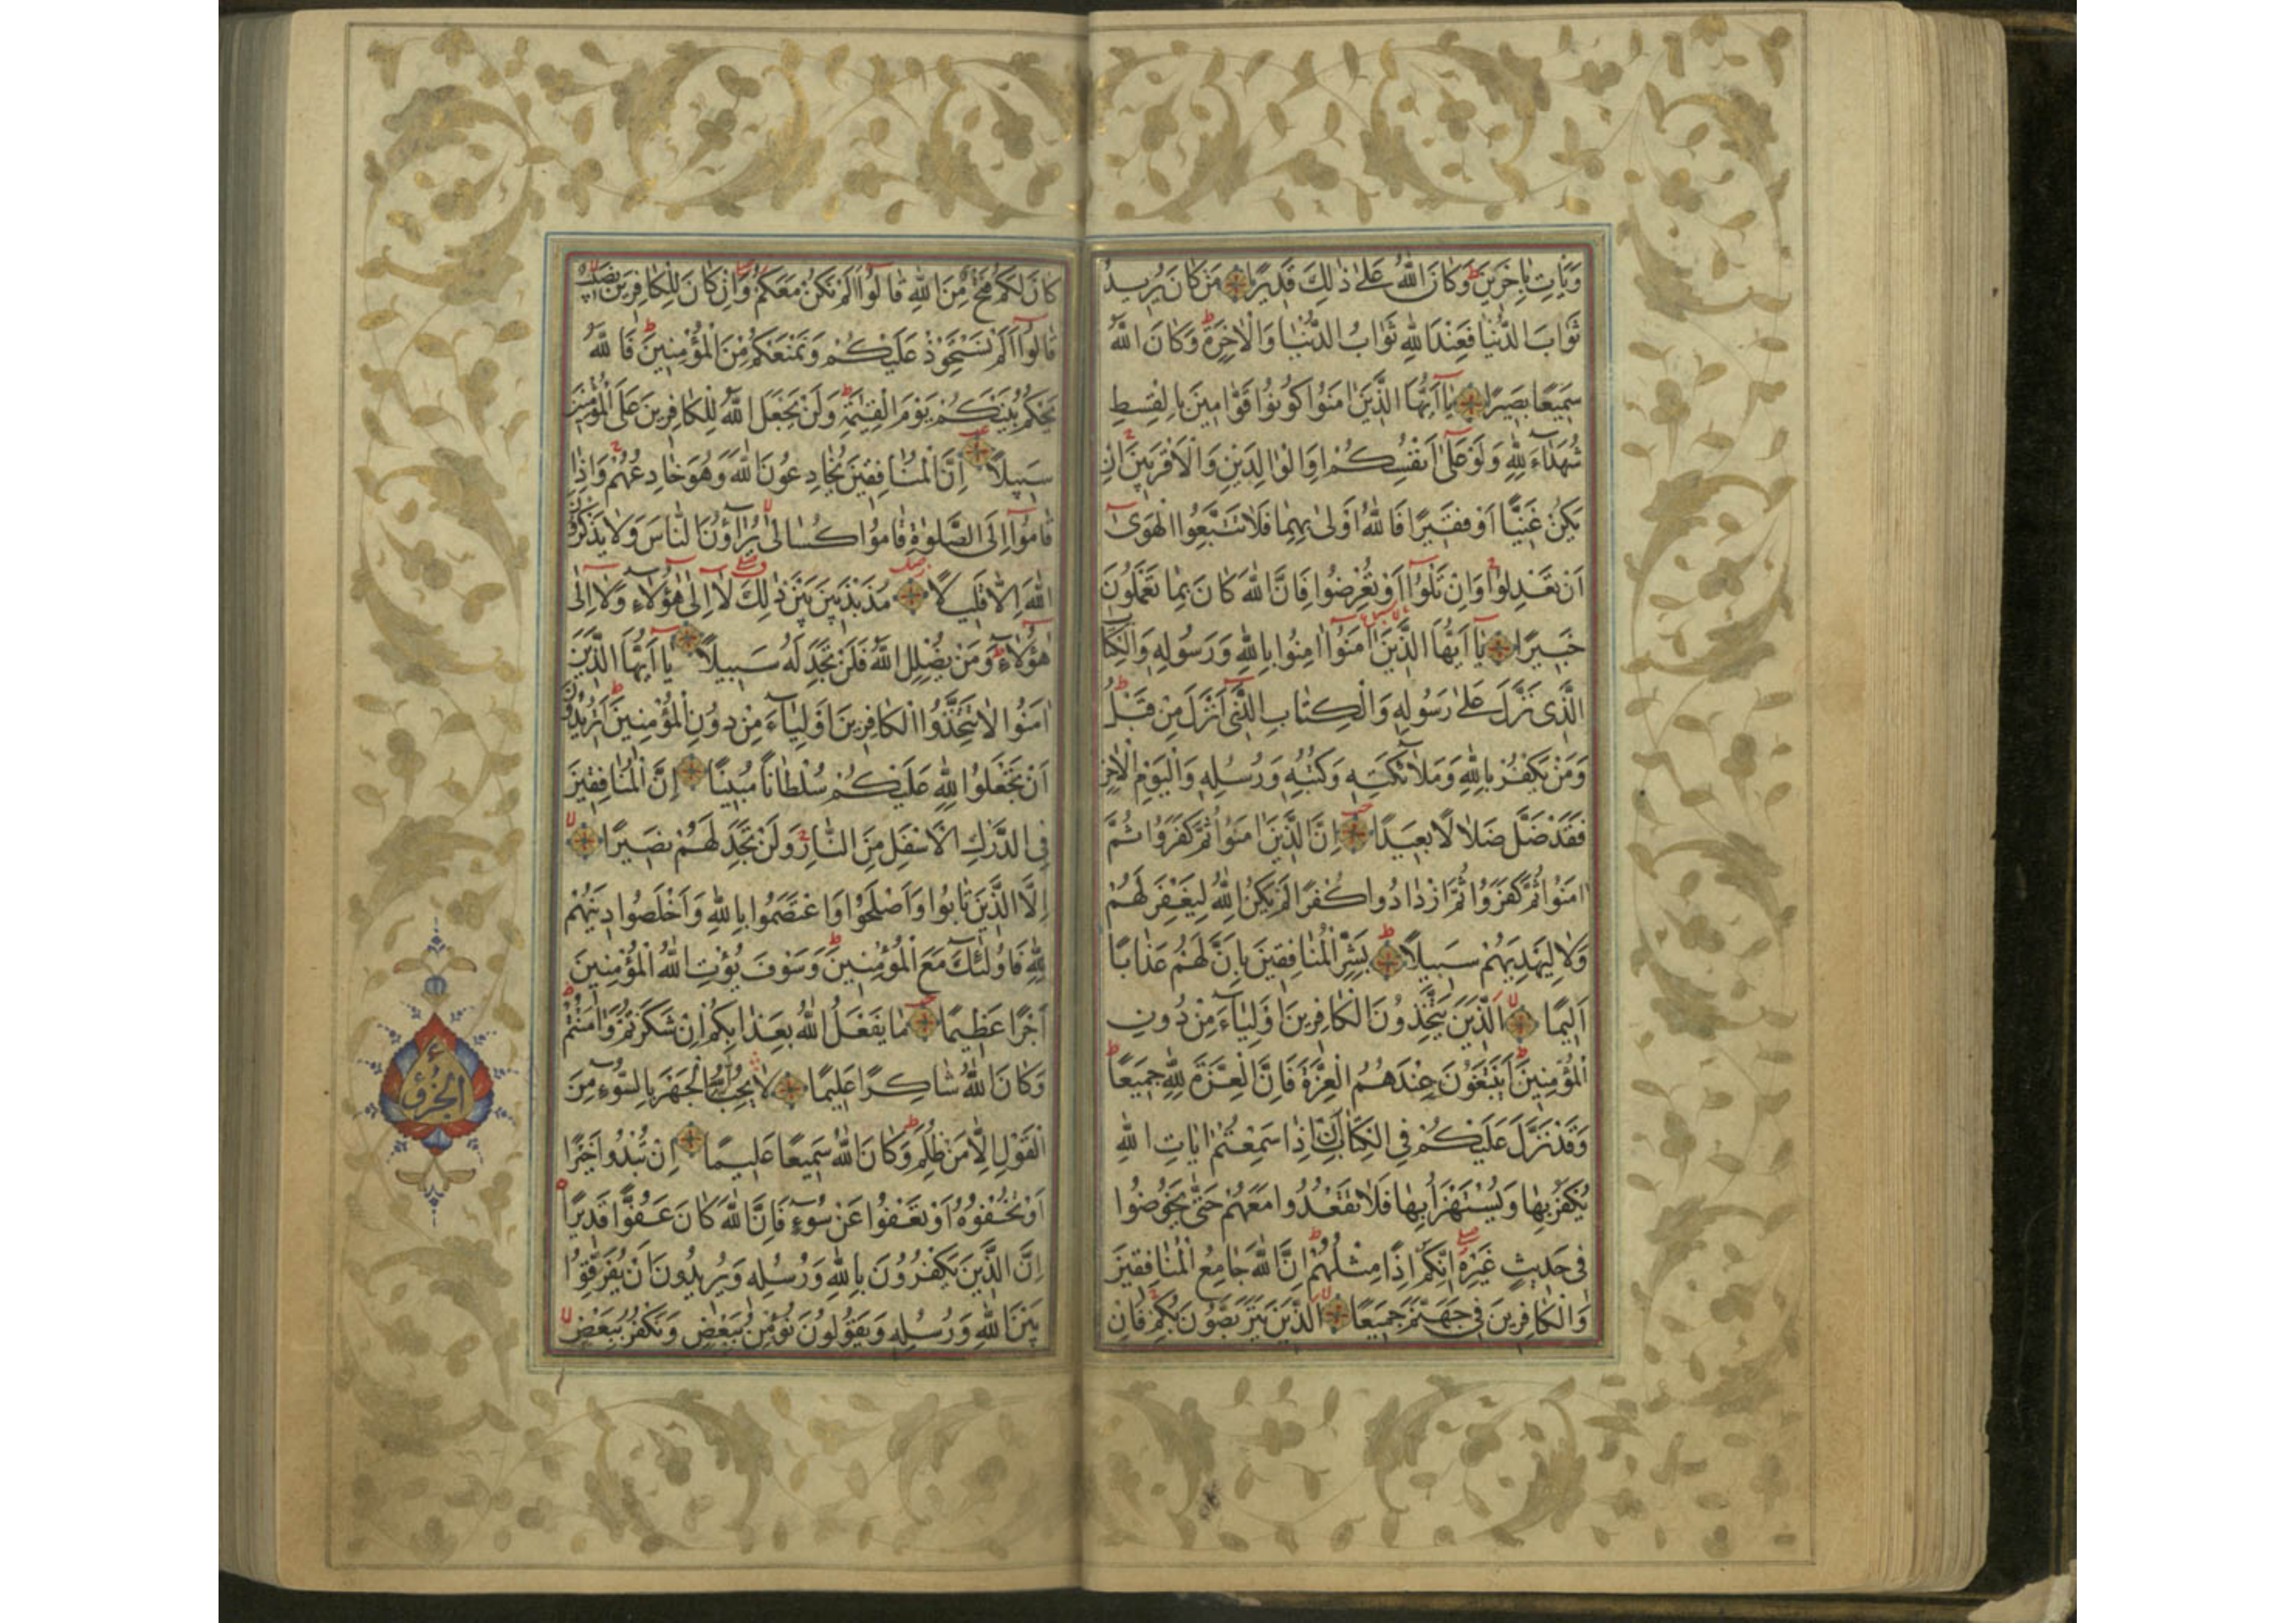 وَيَأْتِ بِاٰخَرِينَ وَكَانَ اللّٰهُ عَلٰى ذٰلِكَ قَدِيرًا مَنْ كَانَ يُرِيدُ
ثَوَابَ الدُّنْيَا فَعِنْدَ اللّٰهِ ثَوَابُ الدُّنْيَا وَالْاٰخِرَةِ وَكَانَ اللّٰهُ
سَمِيعًا بَصِيرًا يَا اَيُّهَا الَّذِينَ اٰمَنُوا كُونُوا قَوَّامِينَ بِالْقِسْطِ
شُهَدَاءَ لِلّٰهِ وَلَوْ عَلٰى اَنْفُسِكُمْ اَوِ الْوَالِدَيْنِ وَالْاَقْرَبِينَ اِنْ
يَكُنْ غَنِيًّا اَوْ فَقِيرًا فَاللّٰهُ اَوْلٰى بِهِمَا فَلَا تَتَّبِعُوا الْهَوٰى
اَنْ تَعْدِلُوا وَاِنْ تَلْوُوا اَوْ تُعْرِضُوا فَاِنَّ اللّٰهَ كَانَ بِمَا تَعْمَلُونَ
خَبِيرًا يَا اَيُّهَا الَّذِينَ اٰمَنُوا اٰمِنُوا بِاللّٰهِ وَرَسُولِهِ وَالْكِتَابِ
الَّذِى نَزَّلَ عَلٰى رَسُولِهِ وَالْكِتَابِ الَّذِى اَنْزَلَ مِنْ قَبْلُ
وَمَنْ يَكْفُرْ بِاللّٰهِ وَمَلَائِكَتِهِ وَكُتُبِهِ وَرُسُلِهِ وَالْيَوْمِ الْاٰخِرِ
فَقَدْ ضَلَّ ضَلَالًا بَعِيدًا اِنَّ الَّذِينَ اٰمَنُوا ثُمَّ كَفَرُوا ثُمَّ
اٰمَنُوا ثُمَّ كَفَرُوا ثُمَّ ازْدَادُوا كُفْرًا لَمْ يَكُنِ اللّٰهُ لِيَغْفِرَ لَهُمْ
وَلَا لِيَهْدِيَهُمْ سَبِيلًا بَشِّرِ الْمُنَافِقِينَ بِاَنَّ لَهُمْ عَذَابًا
اَلِيمًا اَلَّذِينَ يَتَّخِذُونَ الْكَافِرِينَ اَوْلِيَاءَ مِنْ دُونِ
الْمُؤْمِنِينَ اَيَبْتَغُونَ عِنْدَهُمُ الْعِزَّةَ فَاِنَّ الْعِزَّةَ لِلّٰهِ جَمِيعًا
وَقَدْ نَزَّلَ عَلَيْكُمْ فِى الْكِتَابِ اَنْ اِذَا سَمِعْتُمْ اٰيَاتِ اللّٰهِ
يُكْفَرُ بِهَا وَيُسْتَهْزَأُ بِهَا فَلَا تَقْعُدُوا مَعَهُمْ حَتّٰى يَخُوضُوا
فِى حَدِيثٍ غَيْرِهِ اِنَّكُمْ اِذًا مِثْلُهُمْ اِنَّ اللّٰهَ جَامِعُ الْمُنَافِقِينَ
وَالْكَافِرِينَ فِى جَهَنَّمَ جَمِيعًا اَلَّذِينَ يَتَرَبَّصُونَ بِكُمْ فَاِنْ
كَانَ لَكُمْ فَتْحٌ مِنَ اللّٰهِ قَالُوا اَلَمْ نَكُنْ مَعَكُمْ وَاِنْ كَانَ لِلْكَافِرِينَ نَصِيبٌ
قَالُوا اَلَمْ نَسْتَحْوِذْ عَلَيْكُمْ وَنَمْنَعْكُمْ مِنَ الْمُؤْمِنِينَ فَاللّٰهُ
يَحْكُمُ بَيْنَكُمْ يَوْمَ الْقِيٰمَةِ وَلَنْ يَجْعَلَ اللّٰهُ لِلْكَافِرِينَ عَلَى الْمُؤْمِنِينَ
سَبِيلًا اِنَّ الْمُنَافِقِينَ يُخَادِعُونَ اللّٰهَ وَهُوَ خَادِعُهُمْ وَاِذَا
قَامُوا اِلَى الصَّلٰوةِ قَامُوا كُسَالٰى يُرَاؤُنَ النَّاسَ وَلَا يَذْكُرُونَ
اللّٰهَ اِلَّا قَلِيلًا مُذَبْذَبِينَ بَيْنَ ذٰلِكَ لَا اِلٰى هٰؤُلَاءِ وَلَا اِلٰى
هٰؤُلَاءِ وَمَنْ يُضْلِلِ اللّٰهُ فَلَنْ تَجِدَ لَهُ سَبِيلًا يَا اَيُّهَا الَّذِينَ
اٰمَنُوا لَا تَتَّخِذُوا الْكَافِرِينَ اَوْلِيَاءَ مِنْ دُونِ الْمُؤْمِنِينَ اَتُرِيدُونَ
اَنْ تَجْعَلُوا لِلّٰهِ عَلَيْكُمْ سُلْطَانًا مُبِينًا اِنَّ الْمُنَافِقِينَ
فِى الدَّرْكِ الْاَسْفَلِ مِنَ النَّارِ وَلَنْ تَجِدَ لَهُمْ نَصِيرًا
اِلَّا الَّذِينَ تَابُوا وَاَصْلَحُوا وَاعْتَصَمُوا بِاللّٰهِ وَاَخْلَصُوا دِينَهُمْ
لِلّٰهِ فَاُولٰئِكَ مَعَ الْمُؤْمِنِينَ وَسَوْفَ يُؤْتِ اللّٰهُ الْمُؤْمِنِينَ
اَجْرًا عَظِيمًا مَا يَفْعَلُ اللّٰهُ بِعَذَابِكُمْ اِنْ شَكَرْتُمْ وَاٰمَنْتُمْ
وَكَانَ اللّٰهُ شَاكِرًا عَلِيمًا لَا يُحِبُّ اللّٰهُ الْجَهْرَ بِالسُّوءِ مِنَ
الْقَوْلِ اِلَّا مَنْ ظُلِمَ وَكَانَ اللّٰهُ سَمِيعًا عَلِيمًا اِنْ تُبْدُوا خَيْرًا
اَوْ تُخْفُوهُ اَوْ تَعْفُوا عَنْ سُوءٍ فَاِنَّ اللّٰهَ كَانَ عَفُوًّا قَدِيرًا
اِنَّ الَّذِينَ يَكْفُرُونَ بِاللّٰهِ وَرُسُلِهِ وَيُرِيدُونَ اَنْ يُفَرِّقُوا
بَيْنَ اللّٰهِ وَرُسُلِهِ وَيَقُولُونَ نُؤْمِنُ بِبَعْضٍ وَنَكْفُرُ بِبَعْضٍ
الجزؤ